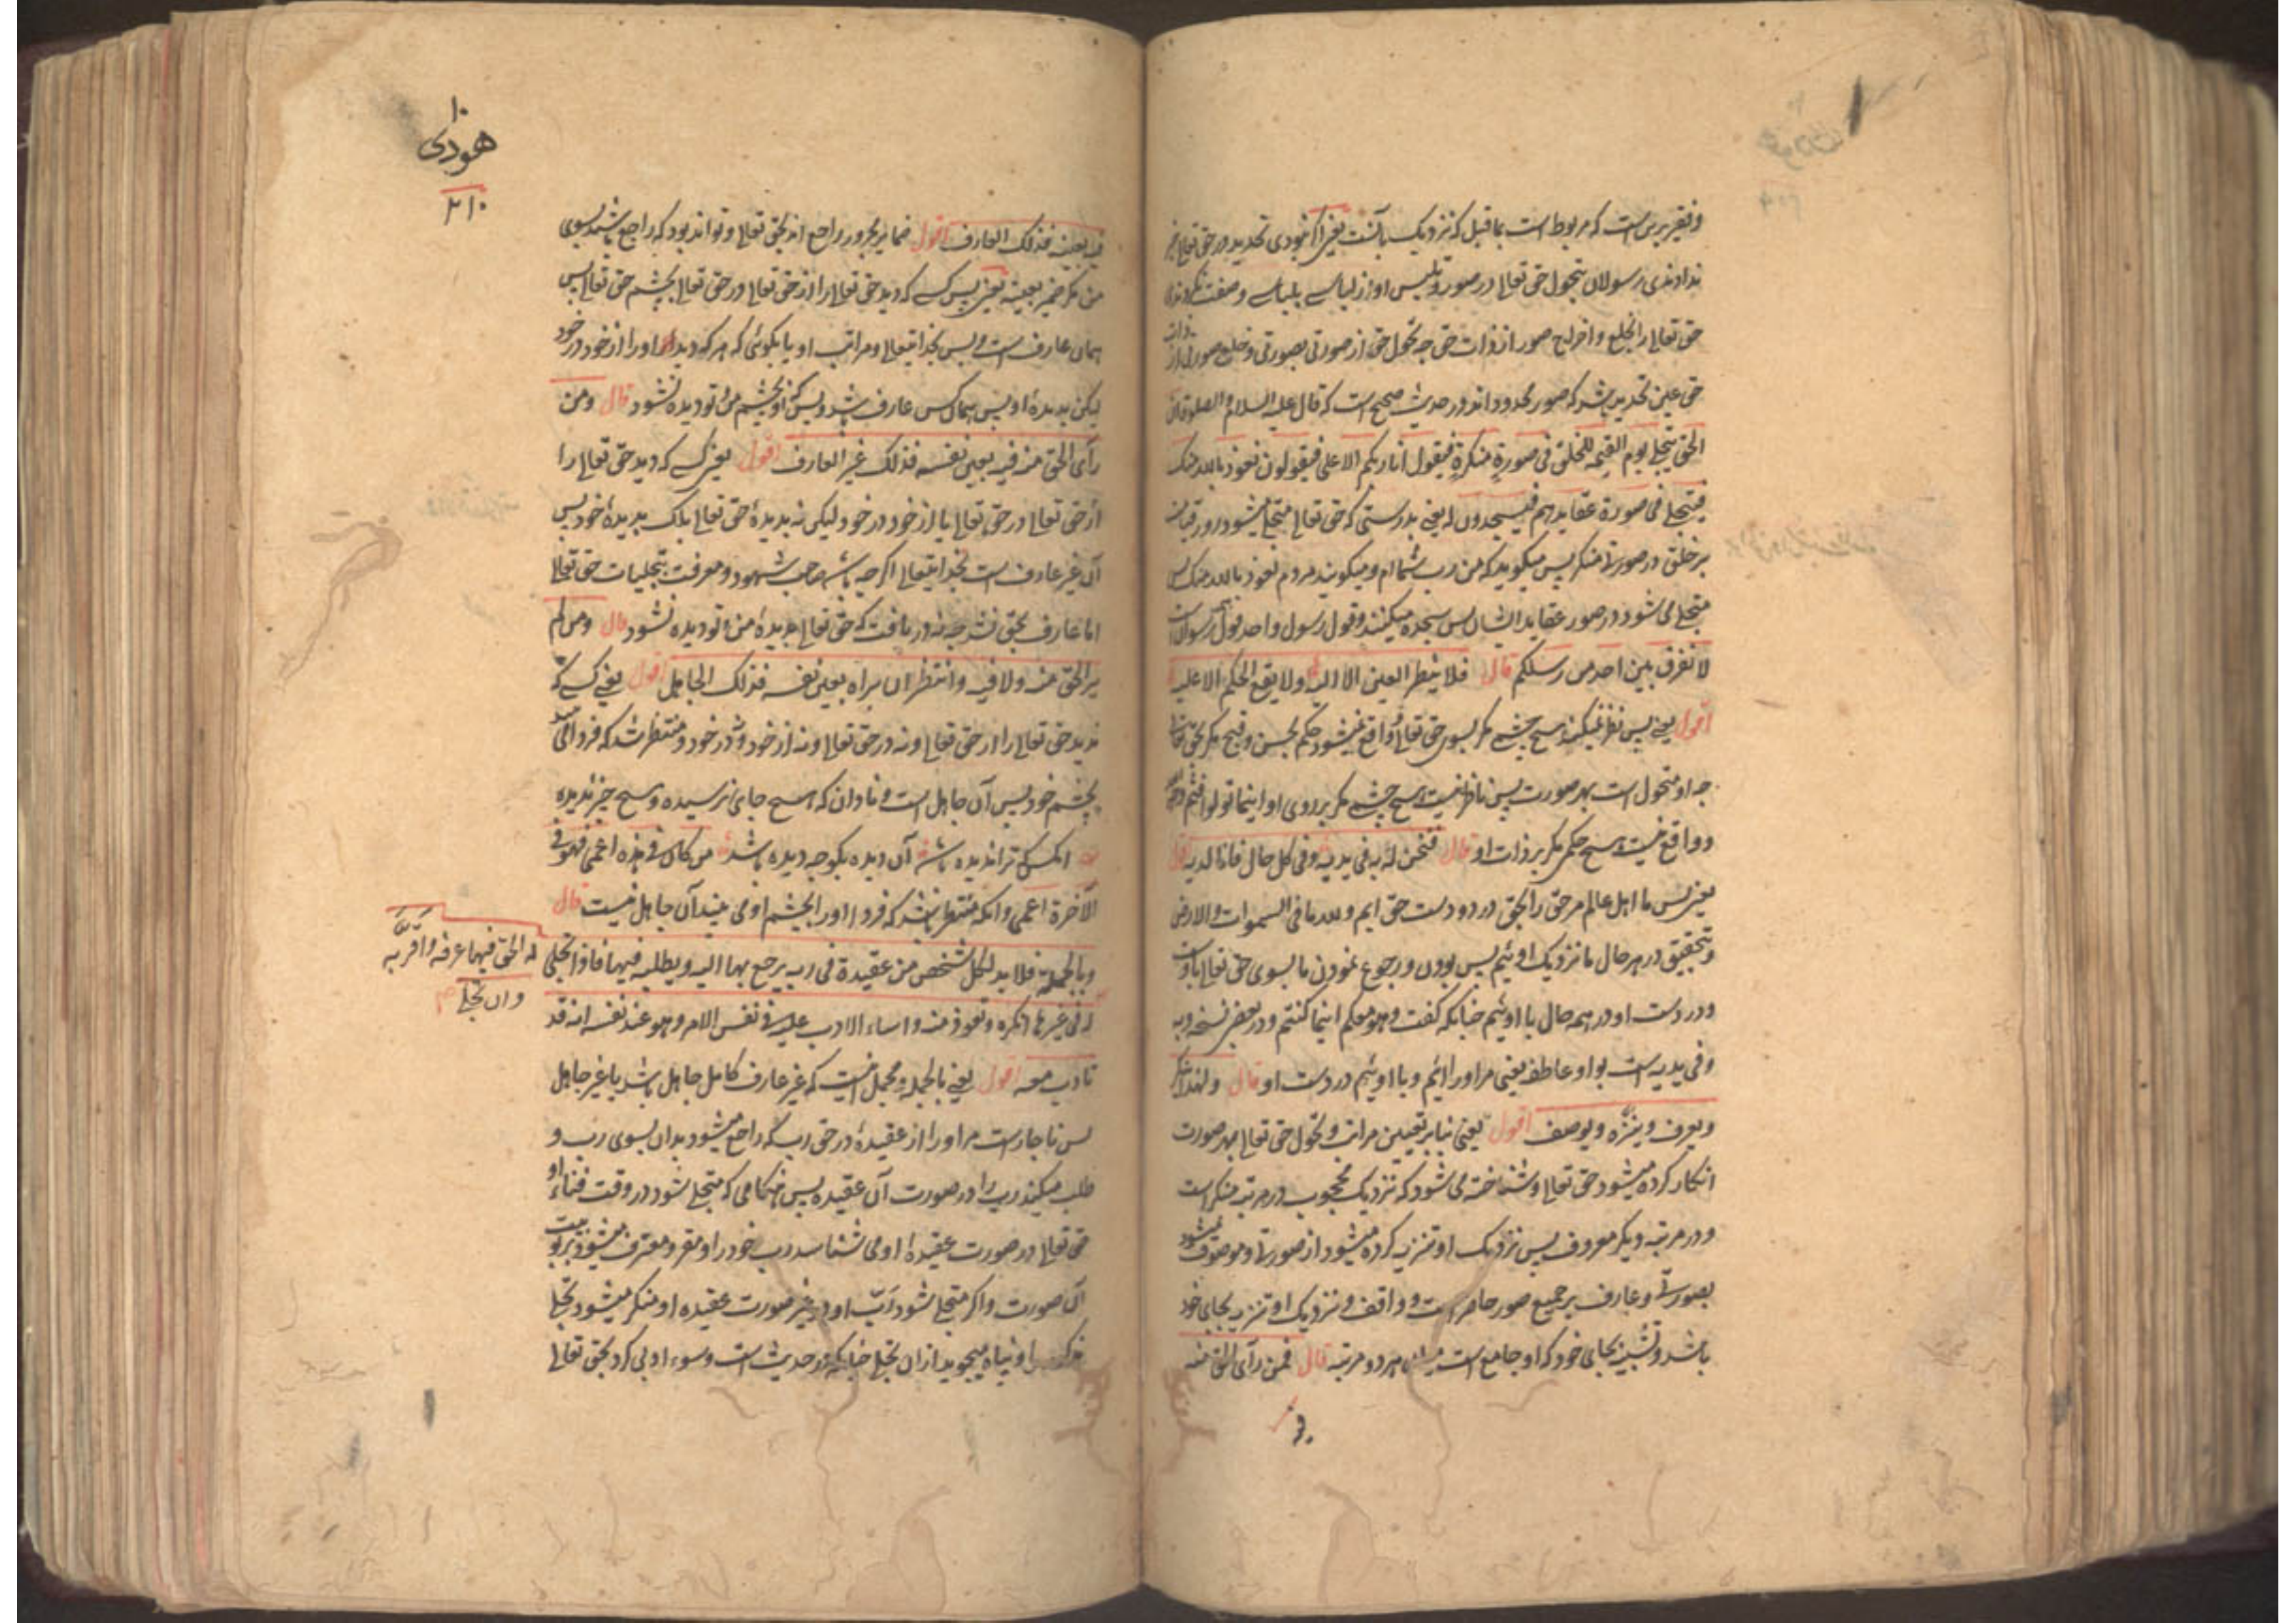 و فقیر برین است که مربوط است بما قبل که نزدیک بآنست یعنی اگر نمودی تحدید در حق تعالی خبر
ندادندی رسولان بتحول حق تعالی در صور و تلبس او از لباسی بلباسی و صفت نکردندی
حق تعالی را بخلع و اخراج صور از ذات حق چه تحول حق از صورتی بصورتی و خلع صورتی از ذات
حق عین تحدید باشد که صور محدود اند و در حدیث صحیح است که قال علیه السلام و الصلوة ان
الحق یتجلی یوم القیمة للخلق فی صورة منکرة فیقول انا ربکم الاعلی فیقولون نعوذ بالله منک
فیتجلی فی صورة عقایدهم فیسجدون له یعنی بدرستی که حق تعالی متجلی میشود روز قیامت
بر خلق در صورتی منکر پس میکوید که من رب شماام و میکویند مردم نعوذ بالله منک پس
متجلی می شود در صور عقاید ایشان پس سجده میکنند و قول رسول واحد قول همه رسولانست
لا نفرق بین احد من رسلکم قال فلا ینظر العین الا الیه و لا یقع الحکم الا علیه
اقول یعنی پس نظر نمیکند هیچ چشمی مکر بسوی حق تعالی و واقع نمیشود حکم بحسن و قبح مکر بحق تعالی
چه او متحول است بهر صورت پس ناظر نیست هیچ چشمی مکر بر روی او اینما تولوا فثم وجه الله
و واقع نیست هیچ حکمی مکر بر ذات او قال فنحن له به فی یدیه و فی کل حال فانا لدیه قال
یعنی پس ما اهل عالم مر حق را بحق در دو دست حق ایم و لله ما فی السموات و الارض
و بتحقیق در هر حال ما نزدیک اوئیم پس بودن و رجوع نمودن ما بسوی حق تعالی باوست
و در دست او در همه حال با اوئیم چنانکه کفت و هو معکم اینما کنتم و در بعض نسخه و به
و فی یدیه است بواو عاطفه یعنی مر او را ائیم و با اوئیم در دست او قال و لهذا ینکر
و یعرف و ینزه و یوصف اقول یعنی بنابر تعیین مراتب و تحول حق تعالی بهر صورت
انکار کرده میشود حق تعالی و شناخته می شود که نزدیک محجوب در مرتبه منکر است
و در مرتبه دیکر معروف پس نزدیک او تنزیه کرده میشود از صورتی و موصوف میشود
بصورتی و عارف بر جمیع صور حاضر است و واقف و نزدیک او تنزیه بجای خود
باشد و تشبیه بجای خود که او جامع است میان هر دو مرتبه قال فمن رأی الحق منه
۱۰
هودی
۲۱۰
فیه بعینه فذلک العارف اقول ضمایر مجرور راجع اند بحق تعالی و تواند بود که راجع باشند بسوی
من مکر ضمیر بعینه یعنی پس کسی که دید حق تعالی را از حق تعالی در حق تعالی بچشم حق تعالی پس
همان عارف است و بس بخدایتعالی و مراتب او یا بکوئی که هر که دید او را از خود در خود
لیکن بدیده او پس همان کس عارف باشد و بس که او بچشم من و تو دیده نشود قال و من
رأی الحق منه فیه بعین نفسه فذلک غیر العارف اقول یعنی کسی که دید حق تعالی را
از حق تعالی در حق تعالی یا از خود در خود لیکن نه بدیدهٔ حق تعالی بلکه بدیدهٔ خود پس
آن غیر عارف است بخدایتعالی اکرچه باشد صاحب شهود و معرفت بتجلیات حق تعالی
اما عارف بحق نشد چه نه دریافت که حق تعالی بدیدهٔ من و تو دیده نشود قال و من لم
یر الحق منه و لا فیه و انتظر ان یراه بعین نفسه فذلک الجاهل اقول یعنی کسی که
ندید حق تعالی را از حق تعالی و نه در حق تعالی و نه از خود و نه در خود و منتظر شد که فردا می بیند
بچشم خود پس آن جاهل است و نادان که هیچ جای نرسیده و هیچ چیز ندیده
انکس که ترا ندیده باشد آن دیده بکو چه دیده باشد من کان فی هذه اعمی فهو فی
الآخرة اعمی و انکه منتظر باشد که فردا او را بچشم او می بیند آن جاهل نیست قال
و بالجملة فلا بد لکل شخص من عقیدة فی ربه یرجع بها الیه و یطلبه فیها فاذا تجلی
له الحق فیها عرفه و اقر به
و ان تجلی
له فی غیرها انکره و تعوذ منه و اساء الادب علیه فی نفس الامر و هو عند نفسه انه قد
تادب معه اقول یعنی بالجمله و مجمل اینست که غیر عارف کامل جاهل باشد یا غیر جاهل
پس ناچار است مر او را از عقیدهٔ در حق رب که راجع میشود بدان بسوی رب و
طلب میکند رب را در صورت آن عقیده پس هنکامی که متجلی شود در وقت فنای او
حق تعالی در صورت عقیده او می شناسد رب خود را و مقر و معترف میشود بربوبیت
آن صورت و اکر متجلی شود رب او در غیر صورت عقیده او منکر میشود تجلی
مذکور را و پناه میجوید ازان تجلی چنانکه در حدیث است و سوء ادبی کرد بحق تعالی